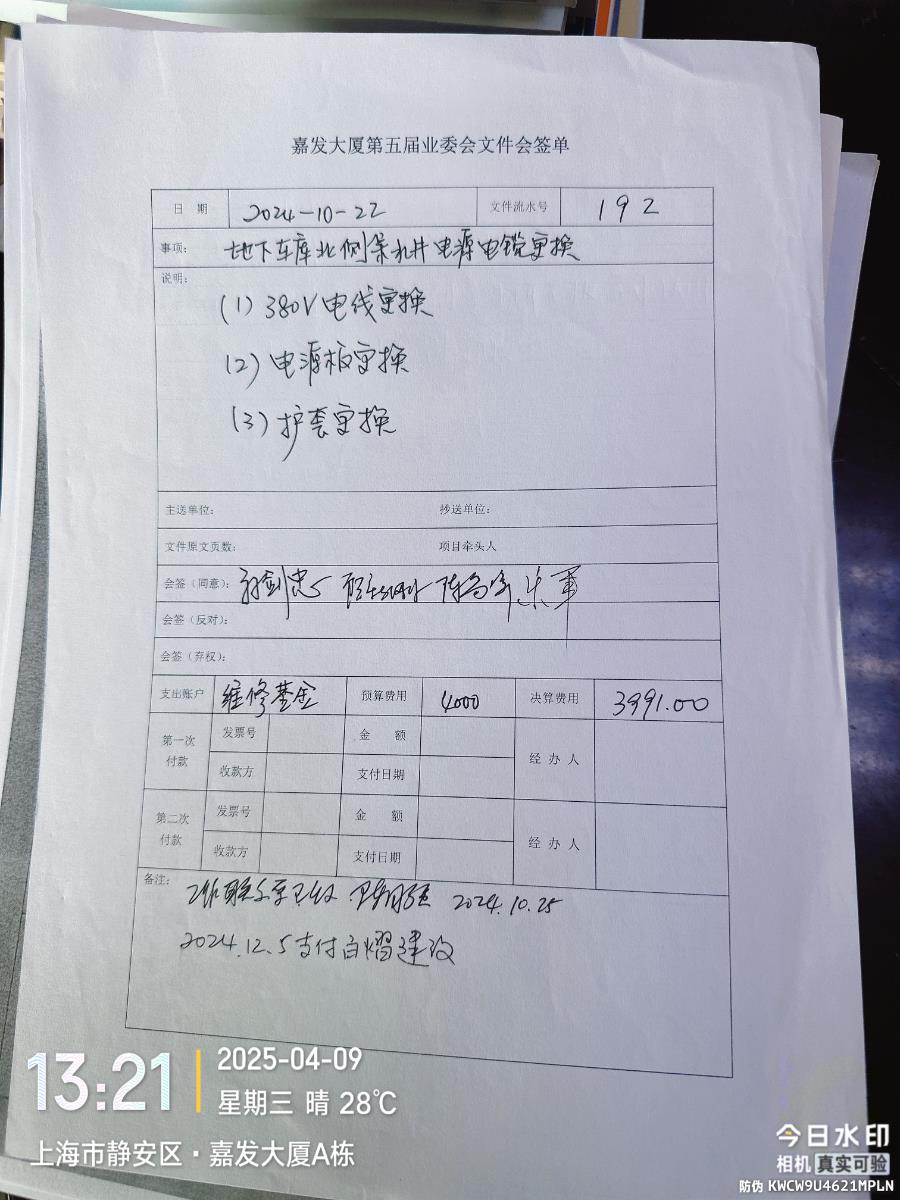 嘉发大厦第五届业委会文件会签单
日 期 2024-10-22 文件流水号 192
事项: 地下车库北侧集水井电源电缆更换
说明:
(1) 380V电线更换
(2) 电源板更换
(3) 护套更换
主送单位: 抄送单位:
文件原文页数: 项目牵头人
会签(同意): 剑忠 朱军
会签(反对):
会签(弃权):
支出账户 维修基金 预算费用 4000 决算费用 3991.00
第一次付款 发票号 金 额 经 办 人
收款方 支付日期
第二次付款 发票号 金 额 经 办 人
收款方 支付日期
备注:
工作联系单已收 2024.10.25
2024.12.5支付白熠建设
13:21 2025-04-09
星期三 晴 28℃
上海市静安区·嘉发大厦A栋
今日水印
相机 真实可验
防伪 KWCW9U4621MPLN